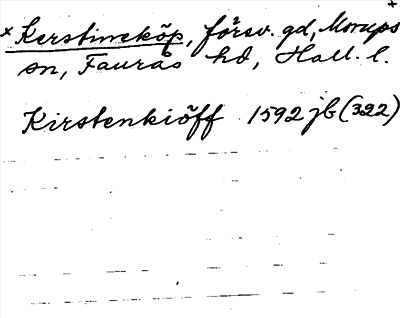 ×Kerstineköp, försv. gd, Morups
sn, Faurås hd, Hall. l.
Kirstenkiöff 1592 jb (322)